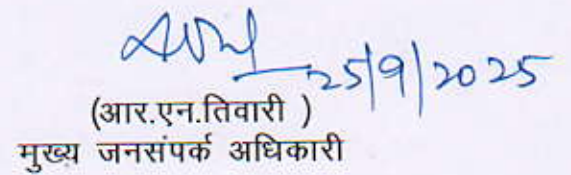 25/9/2025
(आर.एन.तिवारी )
मुख्य जनसंपर्क अधिकारी